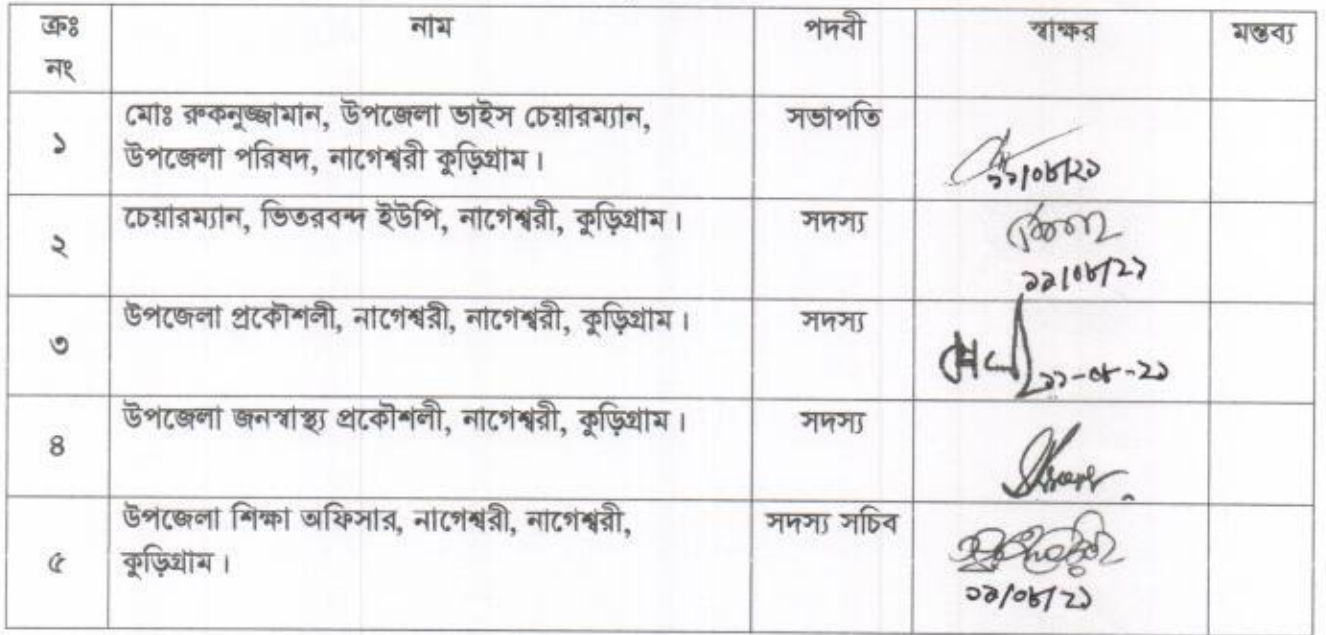 ক্রঃ নং নাম পদবী স্বাক্ষর মন্তব্য
১ মোঃ রুকনুজ্জামান, উপজেলা ভাইস চেয়ারম্যান, সভাপতি
উপজেলা পরিষদ, নাগেশ্বরী কুড়িগ্রাম।
২ চেয়ারম্যান, ভিতরবন্দ ইউপি, নাগেশ্বরী, কুড়িগ্রাম। সদস্য
৩ উপজেলা প্রকৌশলী, নাগেশ্বরী, নাগেশ্বরী, কুড়িগ্রাম। সদস্য
৪ উপজেলা জনস্বাস্থ্য প্রকৌশলী, নাগেশ্বরী, কুড়িগ্রাম। সদস্য
৫ উপজেলা শিক্ষা অফিসার, নাগেশ্বরী, নাগেশ্বরী, সদস্য সচিব
কুড়িগ্রাম।